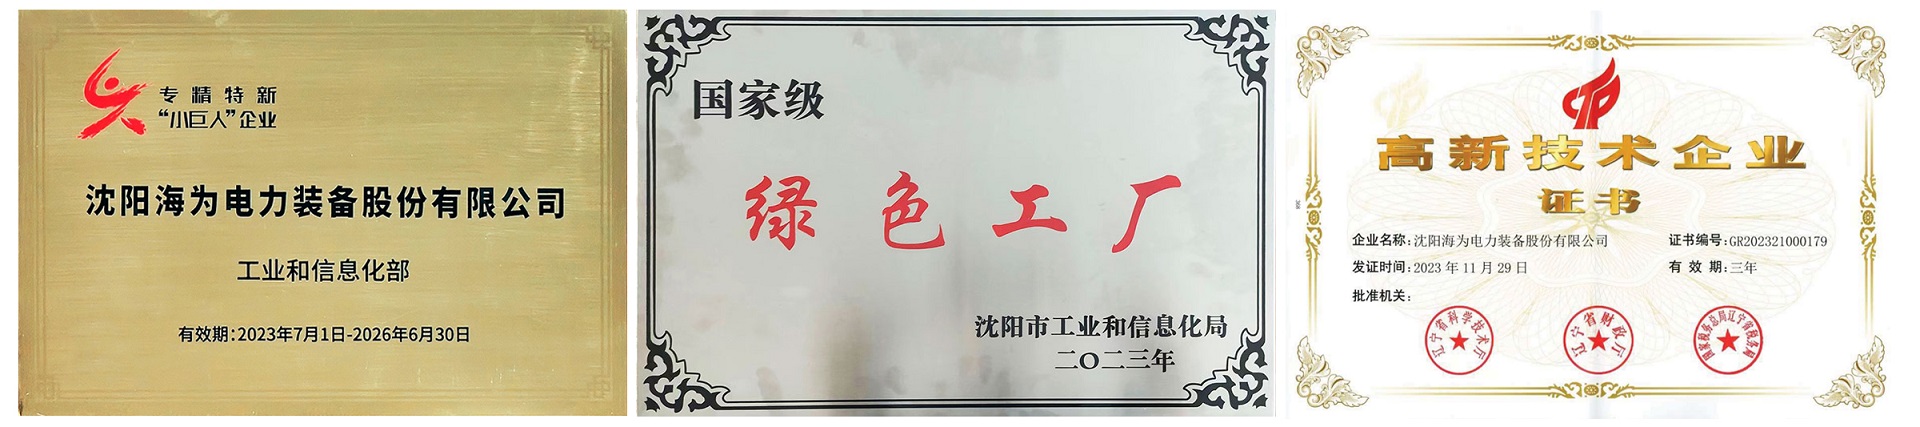 专精特新
“小巨人”企业
沈阳海为电力装备股份有限公司
工业和信息化部
有效期:2023年7月1日-2026年6月30日
国家级
绿色工厂
沈阳市工业和信息化局
二〇二三年
高新技术企业
证书
企业名称:沈阳海为电力装备股份有限公司
证书编号:GR202321000179
发证时间:2023年11月29日
有效期:三年
批准机关:
辽宁省科学技术厅
辽宁省财政厅
国家税务总局辽宁省税务局